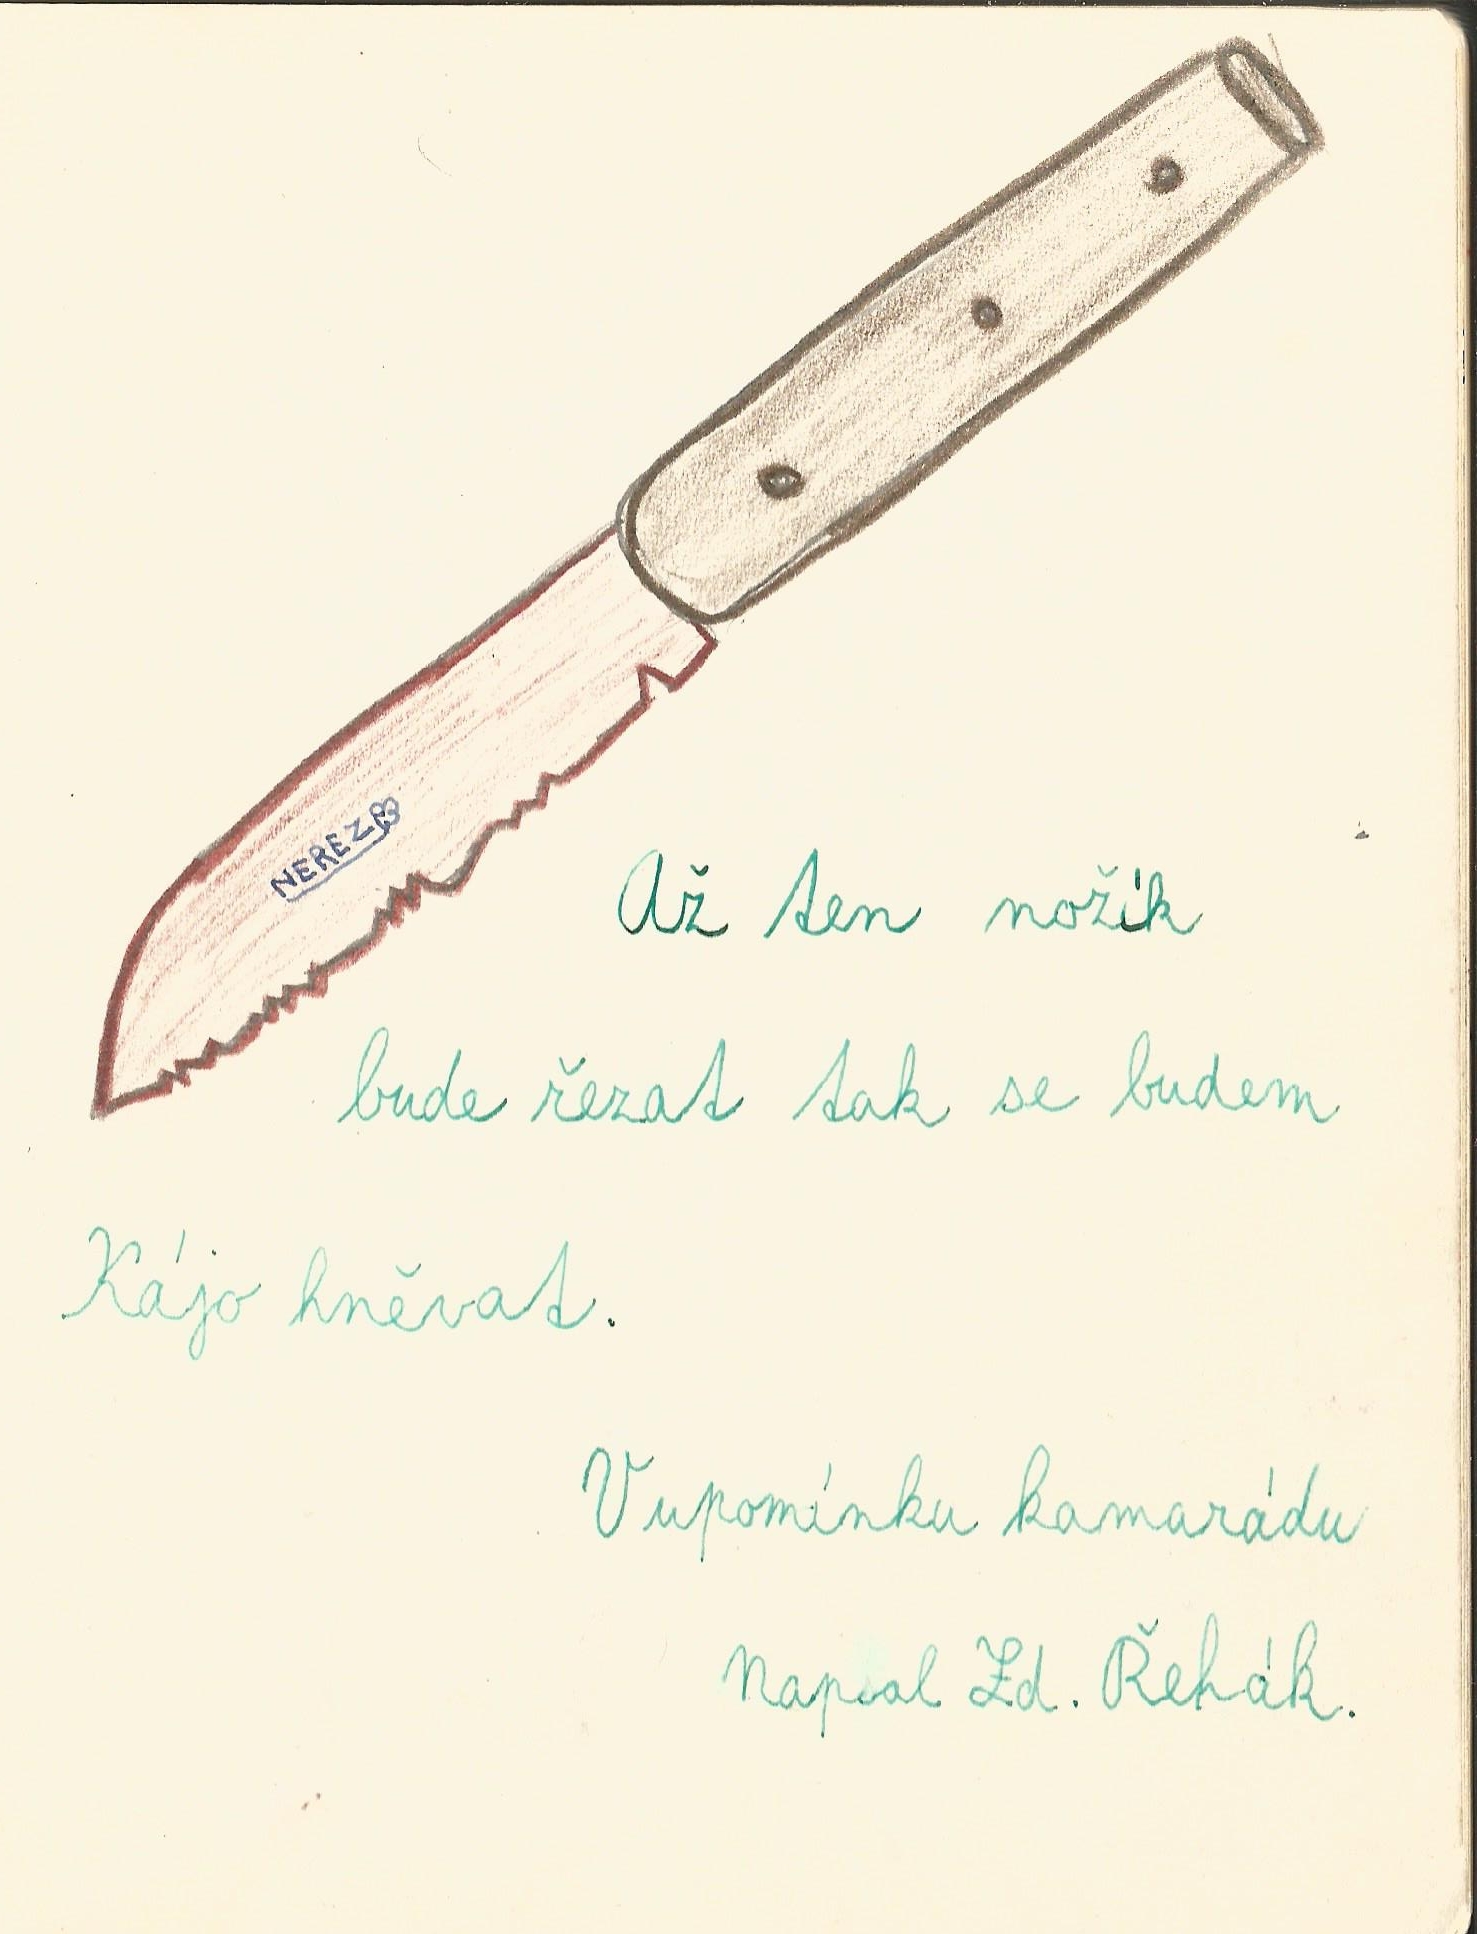 NEREZ
Až ten nožík
bude řezat tak se budem
Kájo hněvat.
V upomínku kamarádu
Napsal Zd. Řehák.